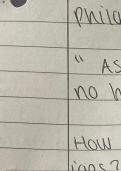 phila
" As
no h
How
ians?